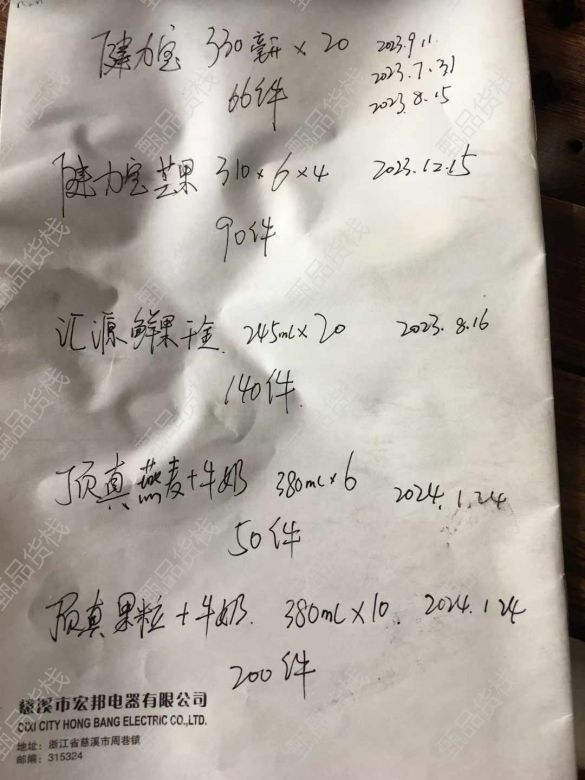 健力宝 330毫升×20 2023.9.11.
2023.7.31
2023.8.15
66件
健力宝 芒果 310×6×4 2023.12.15
90件
汇源鲜果 245mL×20 2023.8.16
140件
顶真燕麦+牛奶 380mL×6 2024.1.24
50件
顶真果粒+牛奶. 380mL×10. 2024.1.24
200件
慈溪市宏邦电器有限公司
CIXI CITY HONG BANG ELECTRIC CO.,LTD.
地址：浙江省慈溪市周巷镇
邮编：315324
甄品货栈